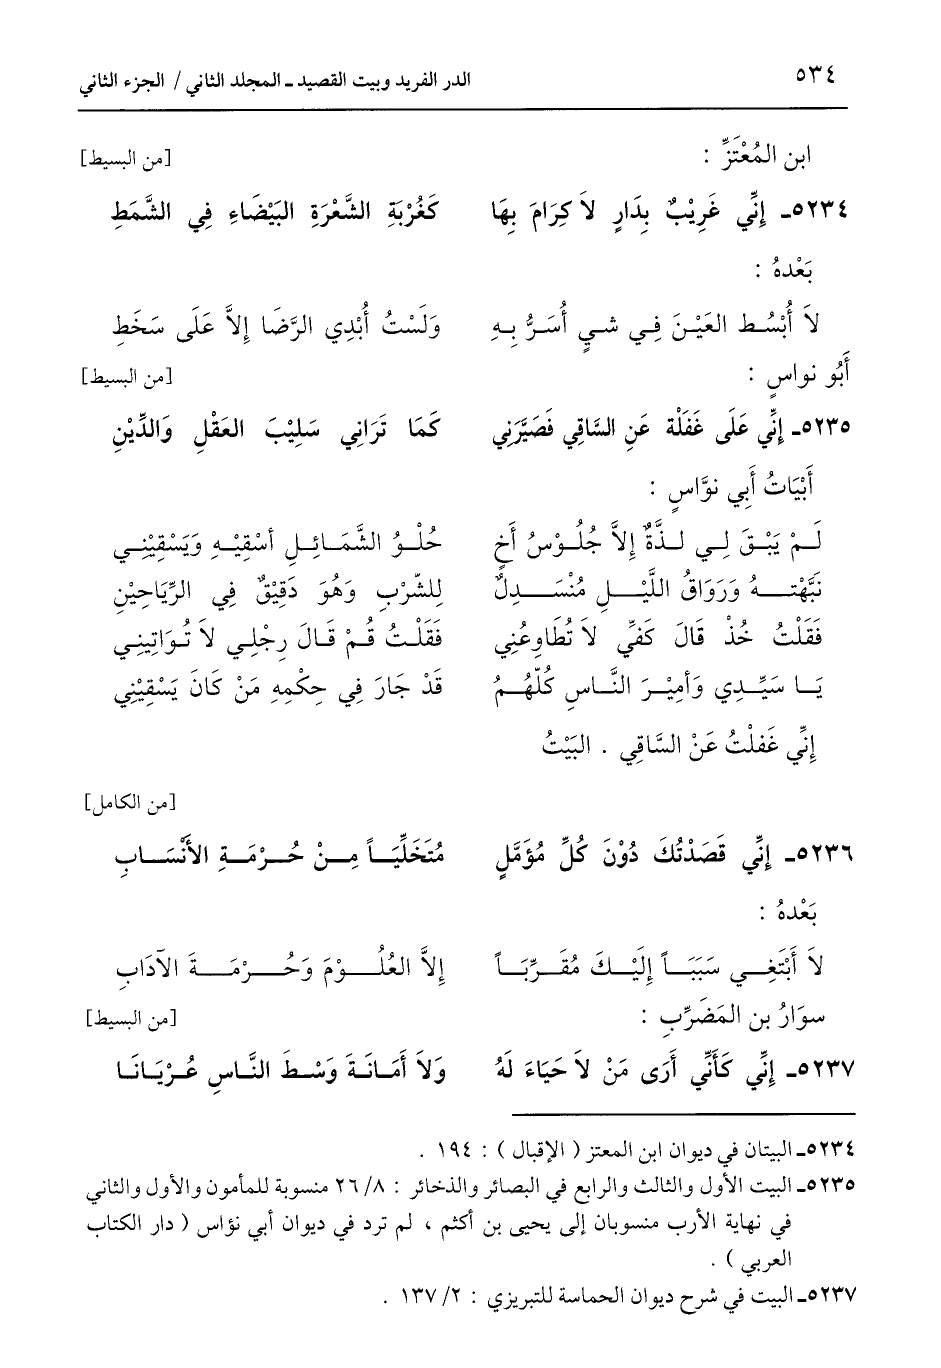 ٥٣٤ الدر الفريد وبيت القصيد ـ المجلد الثاني / الجزء الثاني
ابن المُعْتَزِّ : [من البسيط]
٥٢٣٤ـ إِنِّي غَرِيْبٌ بِدَارٍ لاَ كِرَامَ بِهَا كَغُرْبَةِ الشَّعْرَةِ البَيْضَاءِ فِي الشَّمَطِ
بَعْدهُ :
لاَ أُبْسُط العَيْنَ فِي شيٍ أُسَرُّ بِهِ وَلَسْتُ أُبْدِي الرِّضَا إِلاَّ عَلَى سَخَطِ
أَبُو نواسٍ : [من البسيط]
٥٢٣٥ـ إِنِّي عَلَى غَفْلَة عَنِ السَّاقِي فَصَيَّرَنِي كَمَا تَرَانِي سَلِيْبَ العَقْلِ وَالدِّيْنِ
أَبْيَاتُ أَبِي نوَّاسٍ :
لَمْ يَبْقَ لِي لذَّةٌ إِلاَّ جُلُوْسُ أَخٍ حُلْوُ الشَّمَائِلِ أسْقِيْهِ وَيَسْقِيْنِي
نَبَّهْتهُ وَرَوَاقُ اللَّيْلِ مُنْسَدِلٌ لِلشّرْبِ وَهُوَ دَقِيْقٌ فِي الرِّيَاحِيْنِ
فَقَلْتُ خُذْ قَالَ كَفِّي لاَ تُطَاوِعُنِي فَقَلْتُ قُمْ قَالَ رِجْلِي لاَ تُوَاتِيْنِي
يَا سَيِّدِي وَأمِيْرَ النَّاسِ كُلّهُمُ قَدْ جَارَ فِي حِكْمِهِ مَنْ كَانَ يَسْقِيْنِي
إِنِّي غَفلْتُ عَنْ السَّاقِي . البَيْتُ
[من الكامل]
٥٢٣٦ـ إِنِّي قَصَدْتُكَ دُوْنَ كُلِّ مُؤَمَّلٍ مُتَخَلِّيَاً مِنْ حُرْمَةِ الأَنْسَابِ
بَعْدهُ :
لاَ أَبْتَغِي سَبَبَاً إِلَيْكَ مُقَرِّبَاً إِلاَّ العُلُوْمَ وَحُرْمَةَ الآدَابِ
سوَارُ بن المَضَرِّبِ : [من البسيط]
٥٢٣٧ـ إِنِّي كَأَنِّي أَرَى مَنْ لاَ حَيَاءَ لَهُ وَلاَ أَمَانَةَ وَسْطَ النَّاسِ عُرْيَانَا
٥٢٣٤ـ البيتان في ديوان ابن المعتز ( الإقبال ) : ١٩٤ .
٥٢٣٥ـ البيت الأول والثالث والرابع في البصائر والذخائر : ٨/ ٢٦ منسوبة للمأمون والأول والثاني
في نهاية الأرب منسوبان إلى يحيى بن أكثم ، لم ترد في ديوان أبي نؤاس ( دار الكتاب
العربي ) .
٥٢٣٧ـ البيت في شرح ديوان الحماسة للتبريزي : ٢/ ١٣٧ .